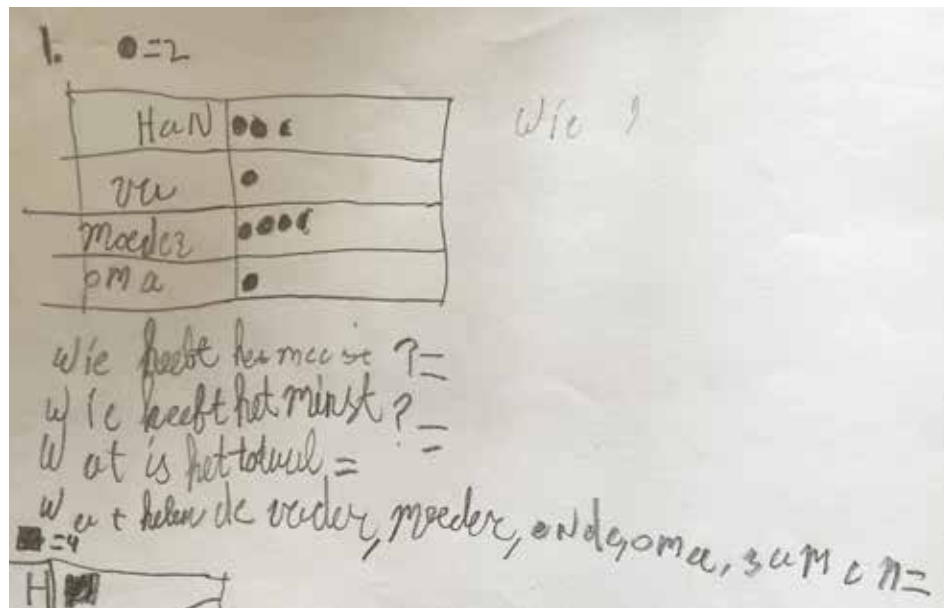 1. ●=2
HaN
va
moeder
oma
Wie ?
Wie heebt het meest ?=
Wie heeft het minst ?=
Wat is het totaal =
Wat heben de vader, moeder, en de oma, samen=
■=4
H